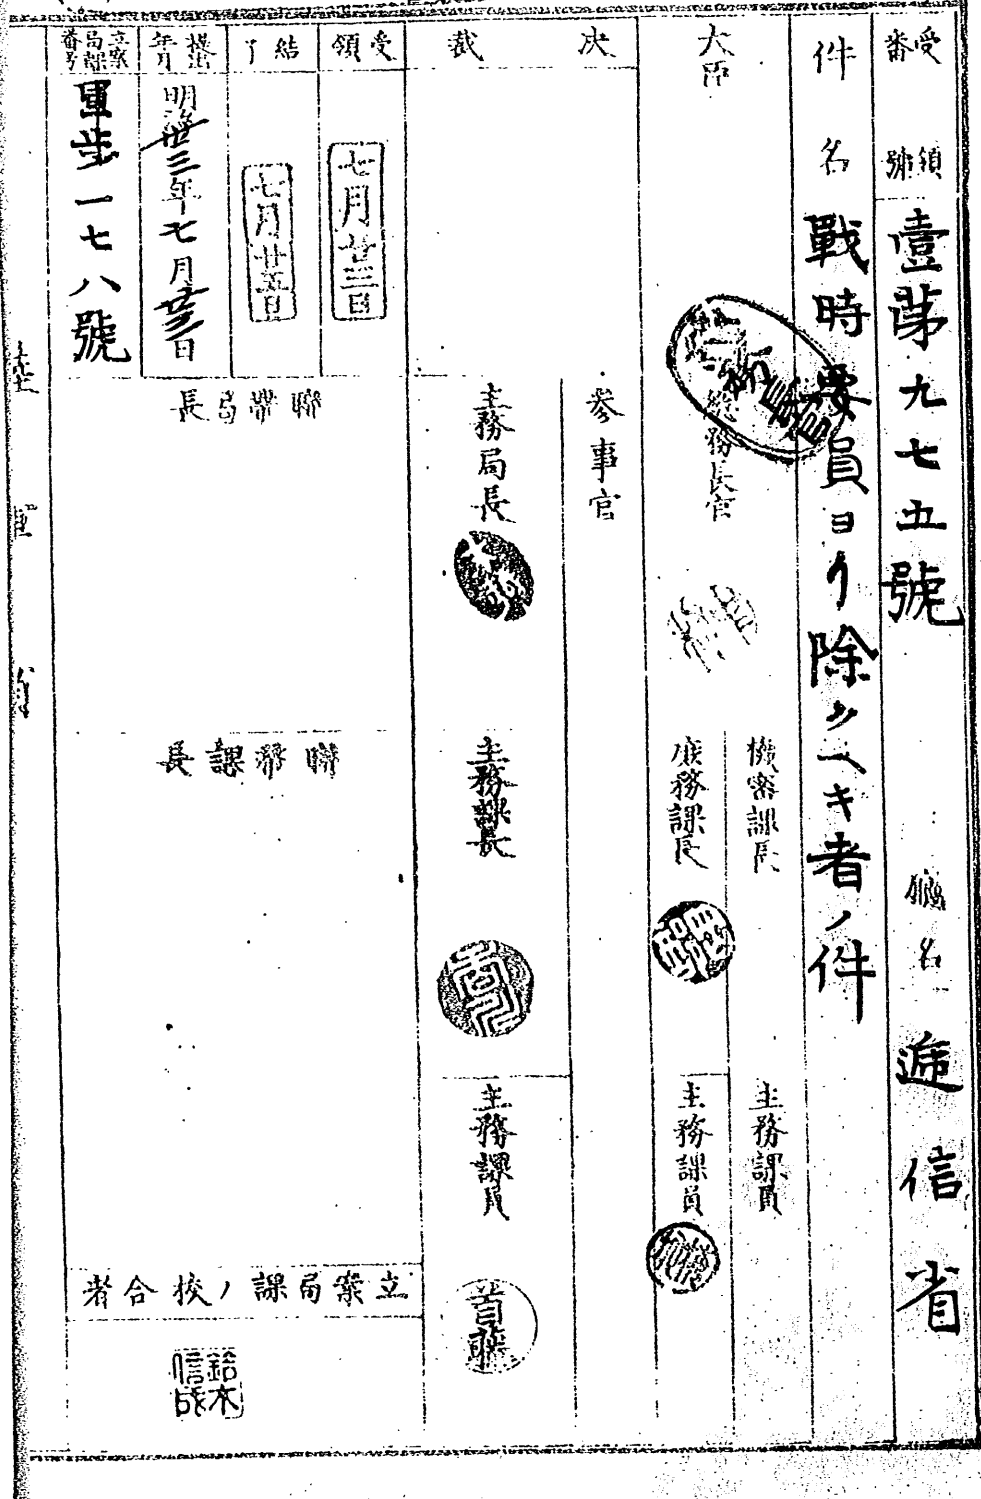 受領番號 壹第九七五號 職名 逓信省
件名 戰時要員ヨリ除クヘキ者ノ件
大臣
總務長官
機密課長
主務課員
庶務課長
主務課員
決裁
參事官
主務局長
主務課長
主務課員
首藤
受領 七月廿三日
結了 七月廿五日
提出年月 明治卅三年七月廿三日
立案局課番号 軍歩一七八號
聯帶局長
聯帶課長
立案局課ノ校合者
鈴木信成
陸軍省